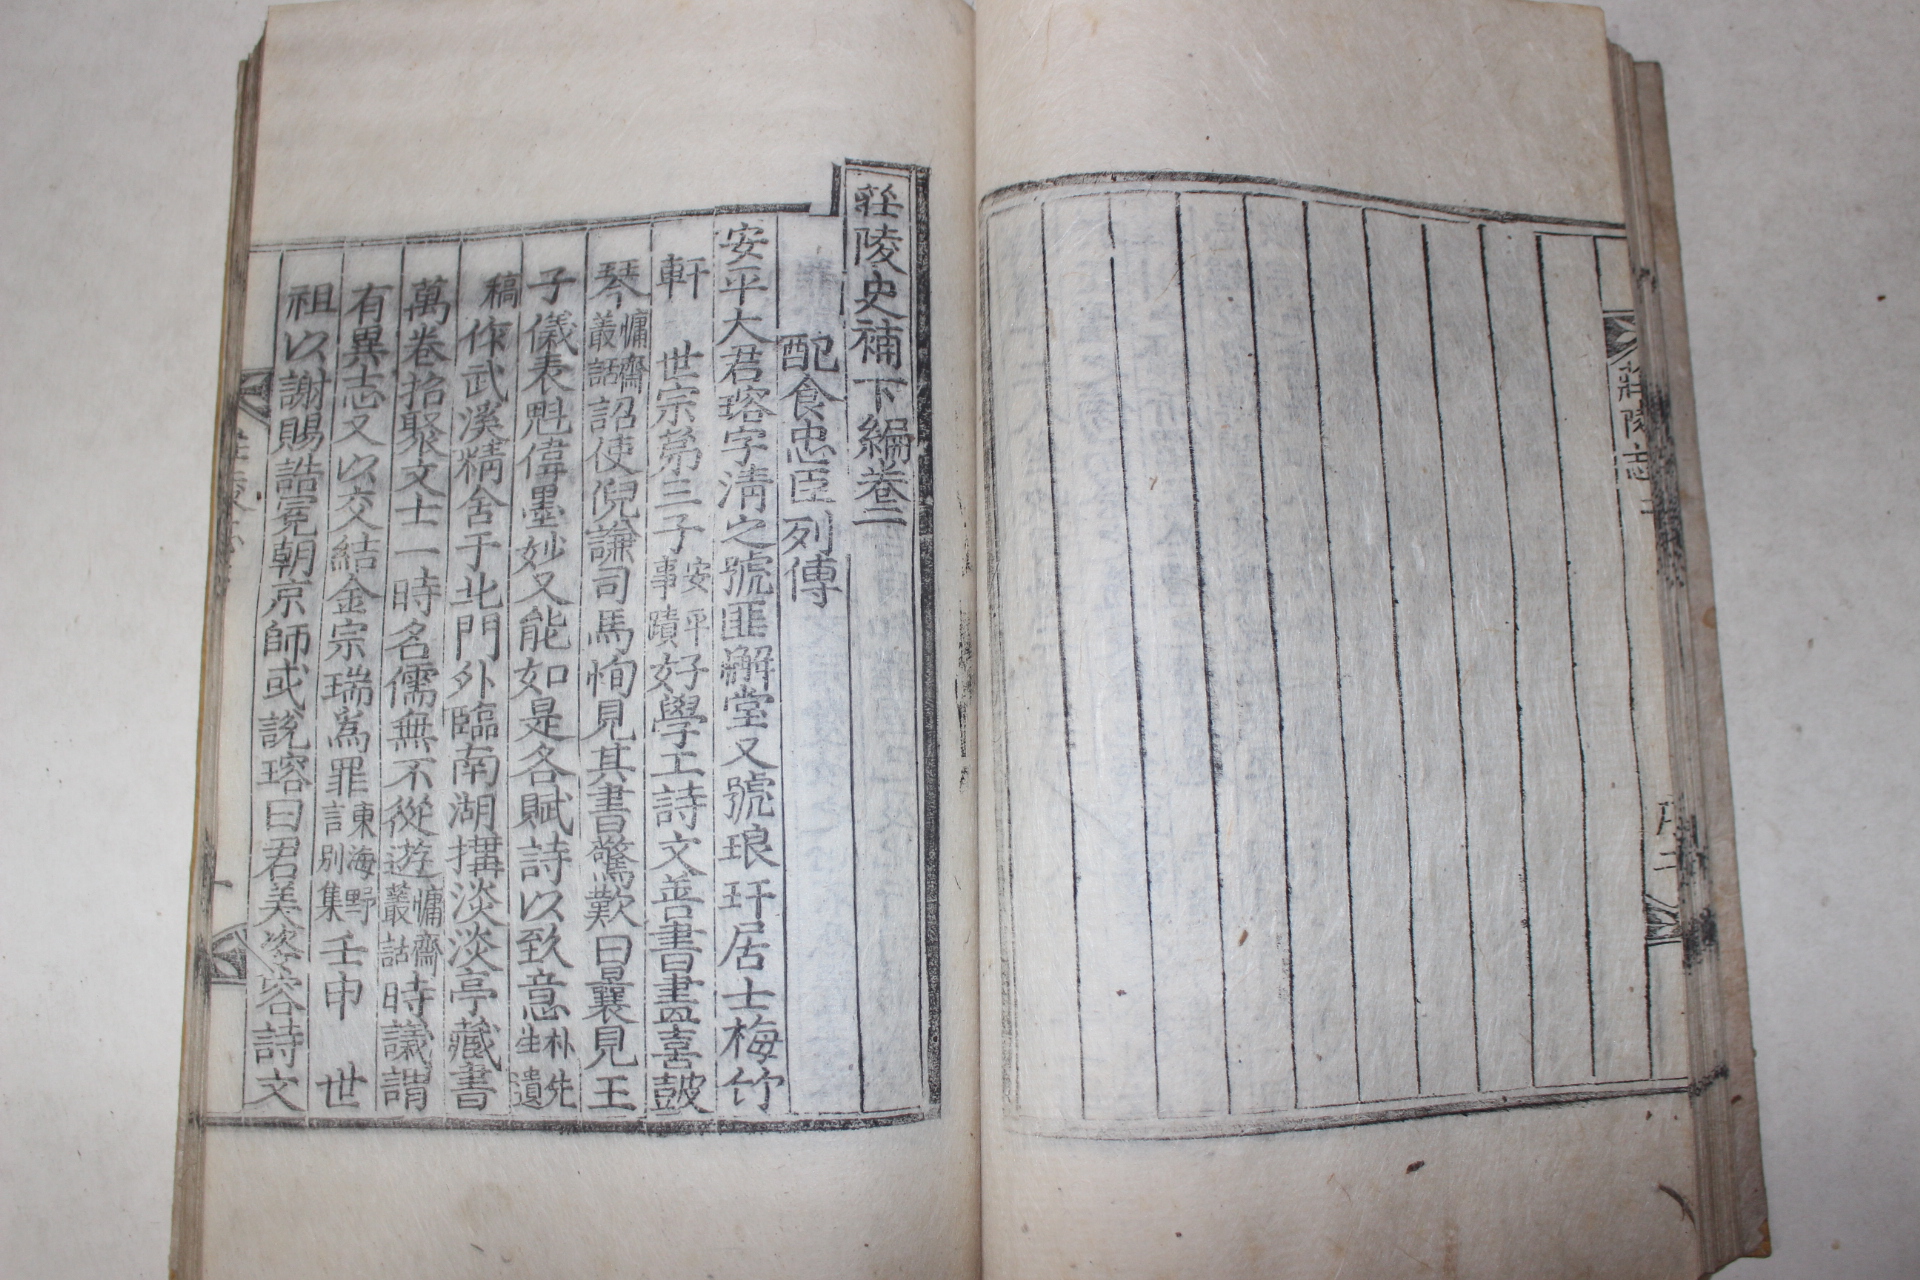 莊陵志 二
序二
莊陵史補下編卷二
配食忠臣列傳
安平大君瑢字清之號匪懈堂又號琅玕居士梅竹
軒 世宗第三子安平事蹟好學工詩文善書畫喜皷
琴慵齋叢話詔使倪謙司馬恂見其書驚歎曰曩見王
子儀表魁偉墨妙又能如是各賦詩以致意朴先生遺
稿作武溪精舍于北門外臨南湖搆淡淡亭藏書
萬卷招聚文士一時名儒無不從遊慵齋叢話時議謂
有異志又以交結金宗瑞爲罪東海野言別集壬申 世
祖以謝賜誥冕朝京師或說瑢曰君美姿容詩文